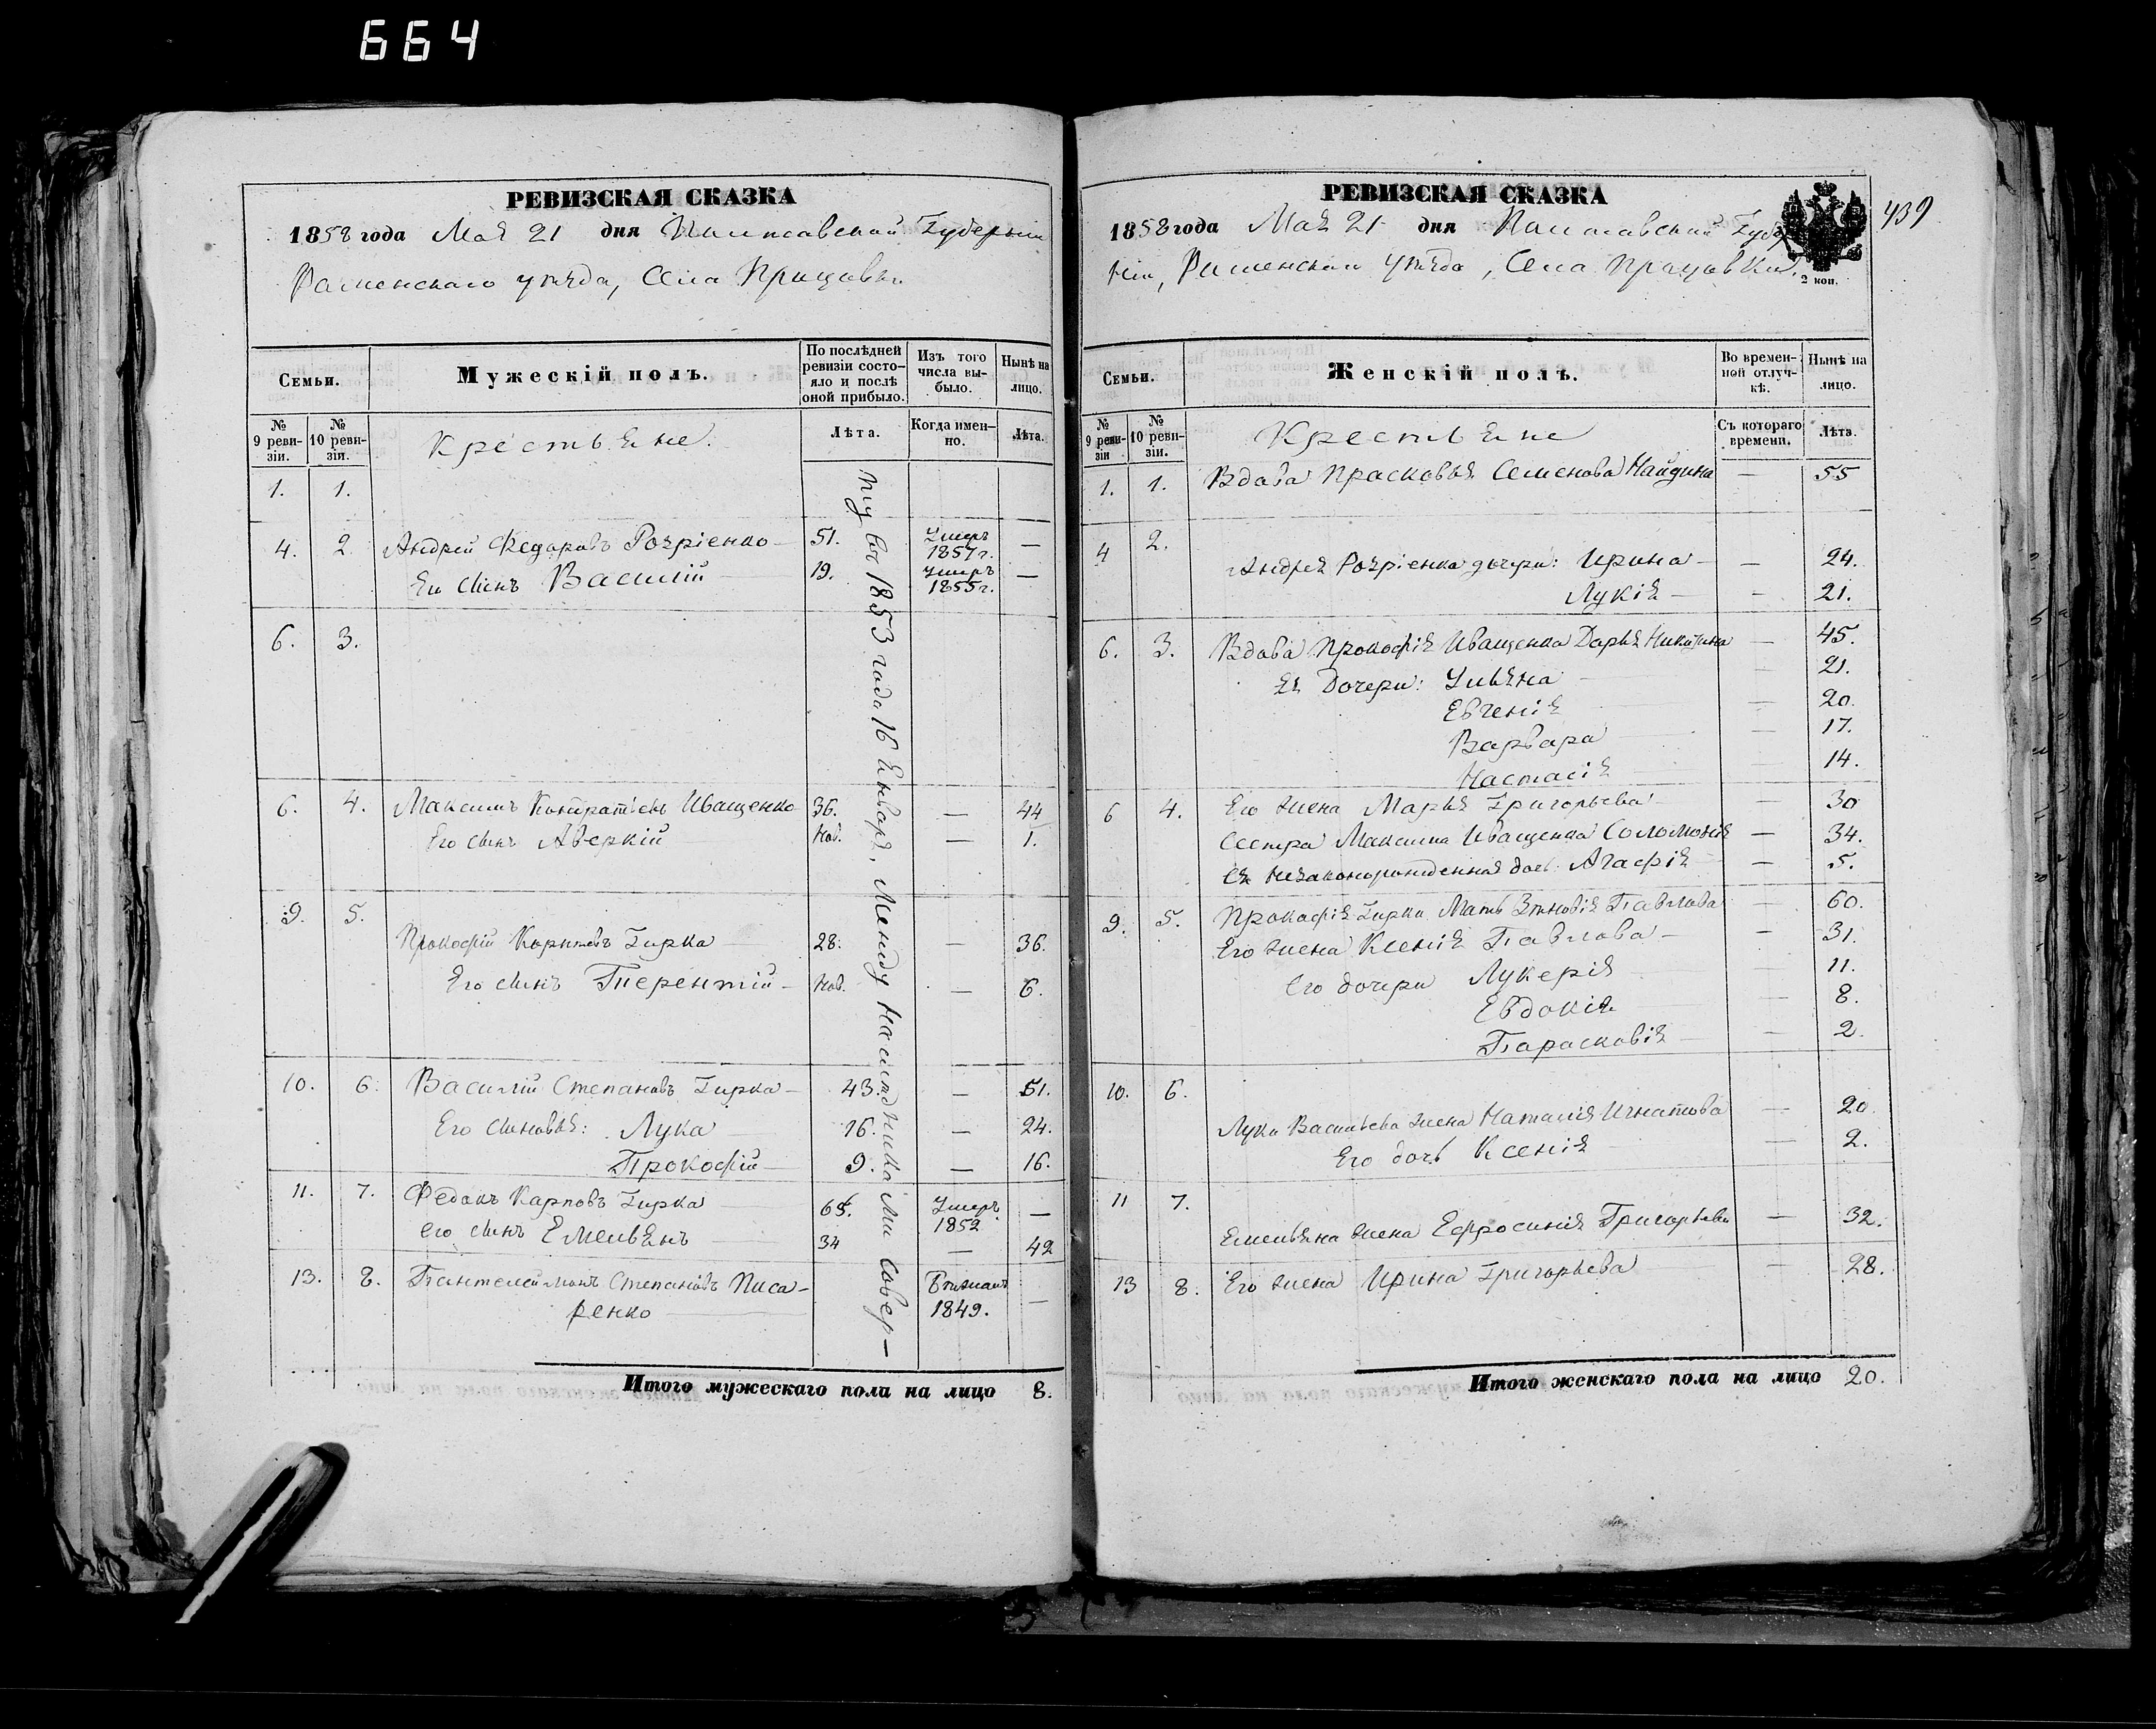 664
РЕВИЗСКАЯ СКАЗКА
1858 года Мая 21 дня Полтавской Губерніи
Роменскаго уѣзда, Села
Семьи.
Мужескій полъ.
По послѣдней ревизіи состояло и послѣ оной прибыло.
Изъ того числа выбыло.
Нынѣ на лицо.
№ 9 ревизіи.
№ 10 ревизіи.
Крестьяне.
Лѣта.
Когда именно.
Лѣта.
1. 1.
4. 2. Андрей Федоровъ 51. Умеръ 1857 г. —
Его сынъ Василій 19. Умеръ 1855 г. —
6. 3.
6. 4. Максимъ Кондратьевъ Иващенко 36. — 44
Его сынъ Аверкій Нов. — 1.
9. 5.
Прокофій Гирка 28. — 36.
Его сынъ Терентій Нов. — 6.
10. 6. Василій Степановъ Гирка 43. — 51.
Его сыновья: Лука 16. — 24.
Прокофій 9. — 16.
11. 7. Федоръ Карповъ Гирка 65. Умеръ 1852 —
его сынъ Емельянъ 34 — 42
13. 8. Пантелеймонъ Степановъ Писа-
ренко 1849. —
въ 1853 года 16 Января, Между
Итого мужескаго пола на лицо 8.
439
РЕВИЗСКАЯ СКАЗКА
1858 года Мая 21 дня Полтавской Губер
ніи, Роменскаго уѣзда, Села
2 коп.
Семьи.
Женскій полъ.
Во временной отлучкѣ.
Нынѣ на лицо.
№ 9 ревизіи
№ 10 ревизіи.
Крестьяне
Съ котораго времени.
Лѣта.
1. 1. Вдова Прасковья Семенова Найдина — 55
4 2.
Андрея дочери: Ирина — 24.
Лукія — 21.
6. 3. Вдова Прокофія Иващенка Дарья Никитина — 45.
Ея Дочери: Ульяна 21.
Евгенія — 20.
Варвара — 17.
Настасія — 14.
6 4. Его жена Марья Григорьева — 30
Сестра Максима Иващенка Соломонія — 34.
ея незаконорожденная дочь Агафія — 5.
9. 5. Прокофія Гирки Мать Зиновія Павлова — 60.
Его жена Ксенія Павлова — 31.
его дочери Лукерія 11.
Евдокія — 8.
Парасковія — 2.
10. 6.
Луки Васильева жена Наталія Игнатова — 20
Его дочь Ксенія — 2.
11 7.
Емельяна жена Ефросинія Григорьева — 32.
13 8. Его жена Ирина Григорьева — 28.
Итого женскаго пола на лицо 20.